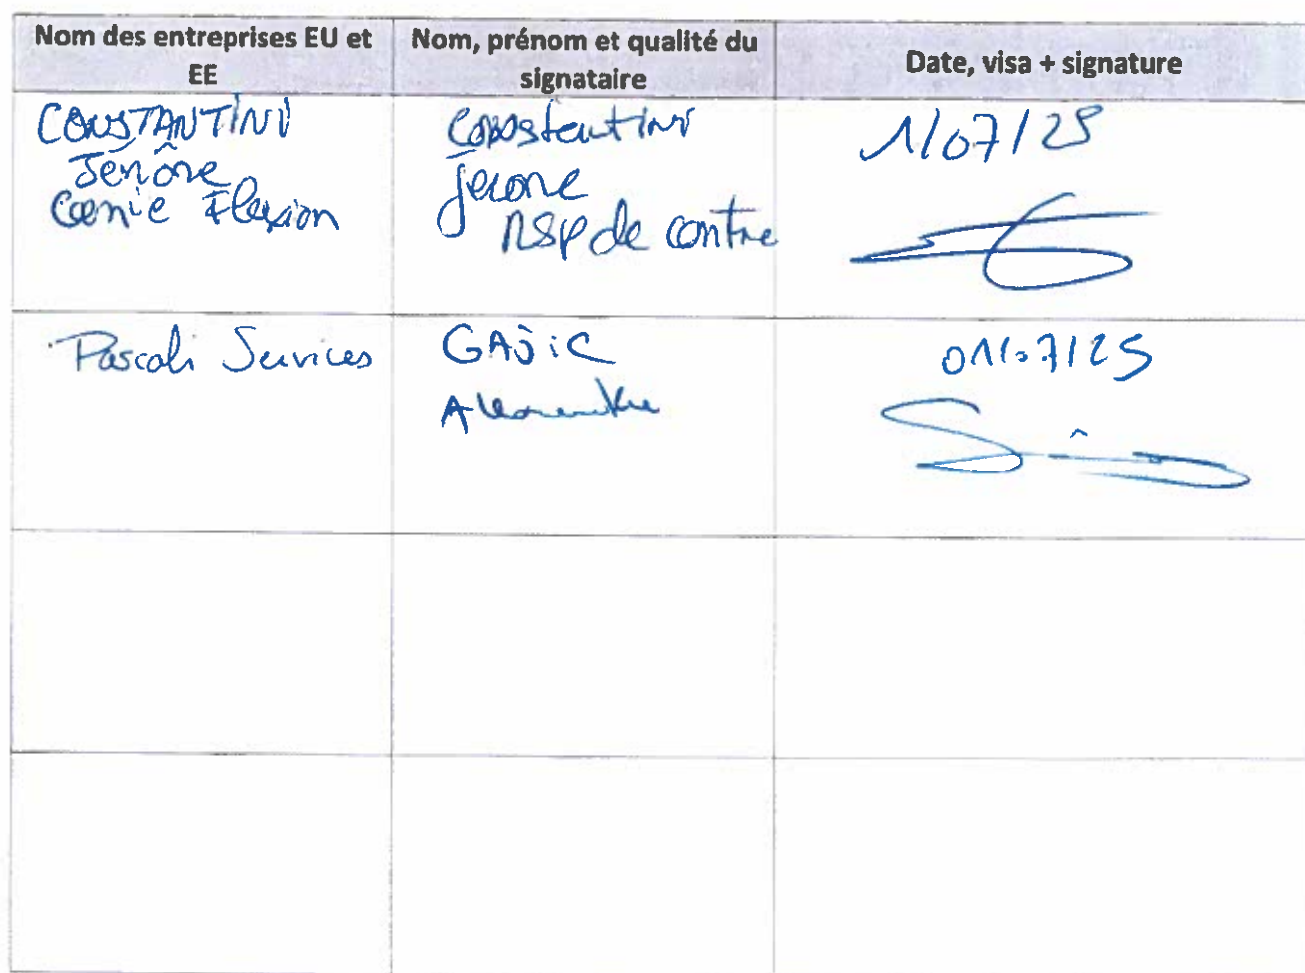 Nom des entreprises EU et
EE
Nom, prénom et qualité du
signataire
Date, visa + signature
CONSTANTINI
Jérôme
Flexion
Constantini
Jerome
RSP de contre
1/07/25
Pascali Services
GAJiC
Alexandre
01/07/25